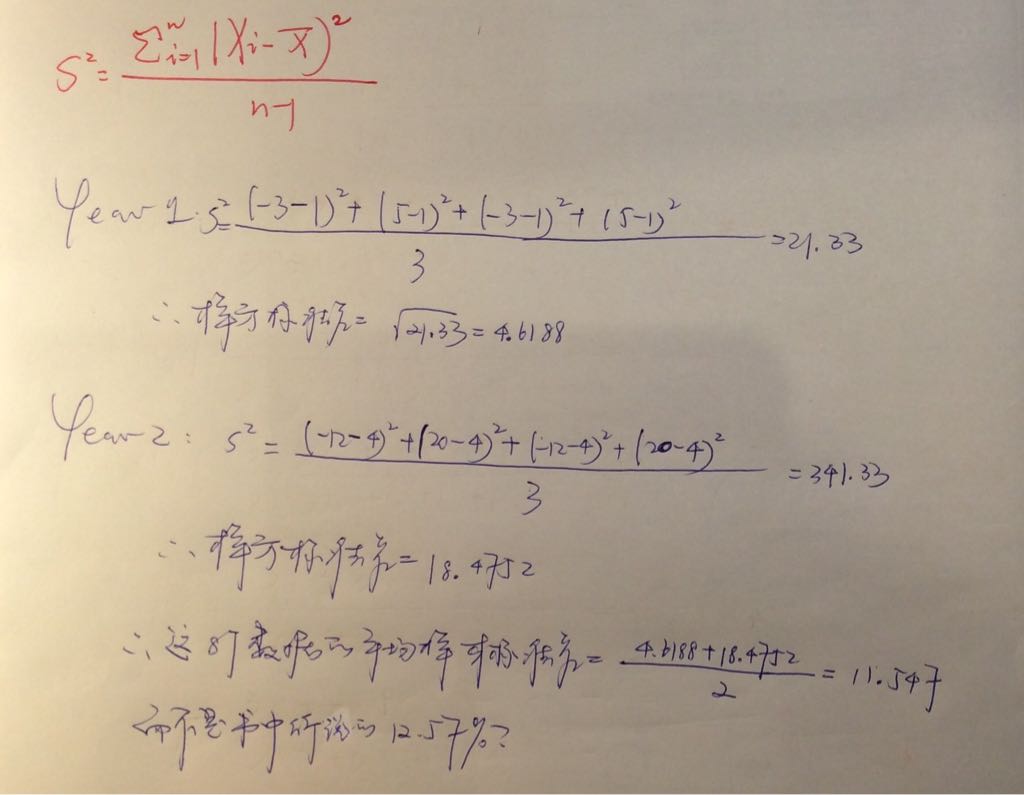 S² = Σⁿᵢ₌₁(Xi - X̄)² / n-1
Year 1: S² = (-3-1)² + (5-1)² + (-3-1)² + (5-1)² / 3 = 21.33
∴ 样本标准差 = √21.33 = 4.6188
Year 2: S² = (-12-4)² + (20-4)² + (-12-4)² + (20-4)² / 3 = 341.33
∴ 样本标准差 = 18.4752
∴ 这8个数据的平均样本标准差 = 4.6188 + 18.4752 / 2 = 11.547
而不是书中所说的 12.57%?